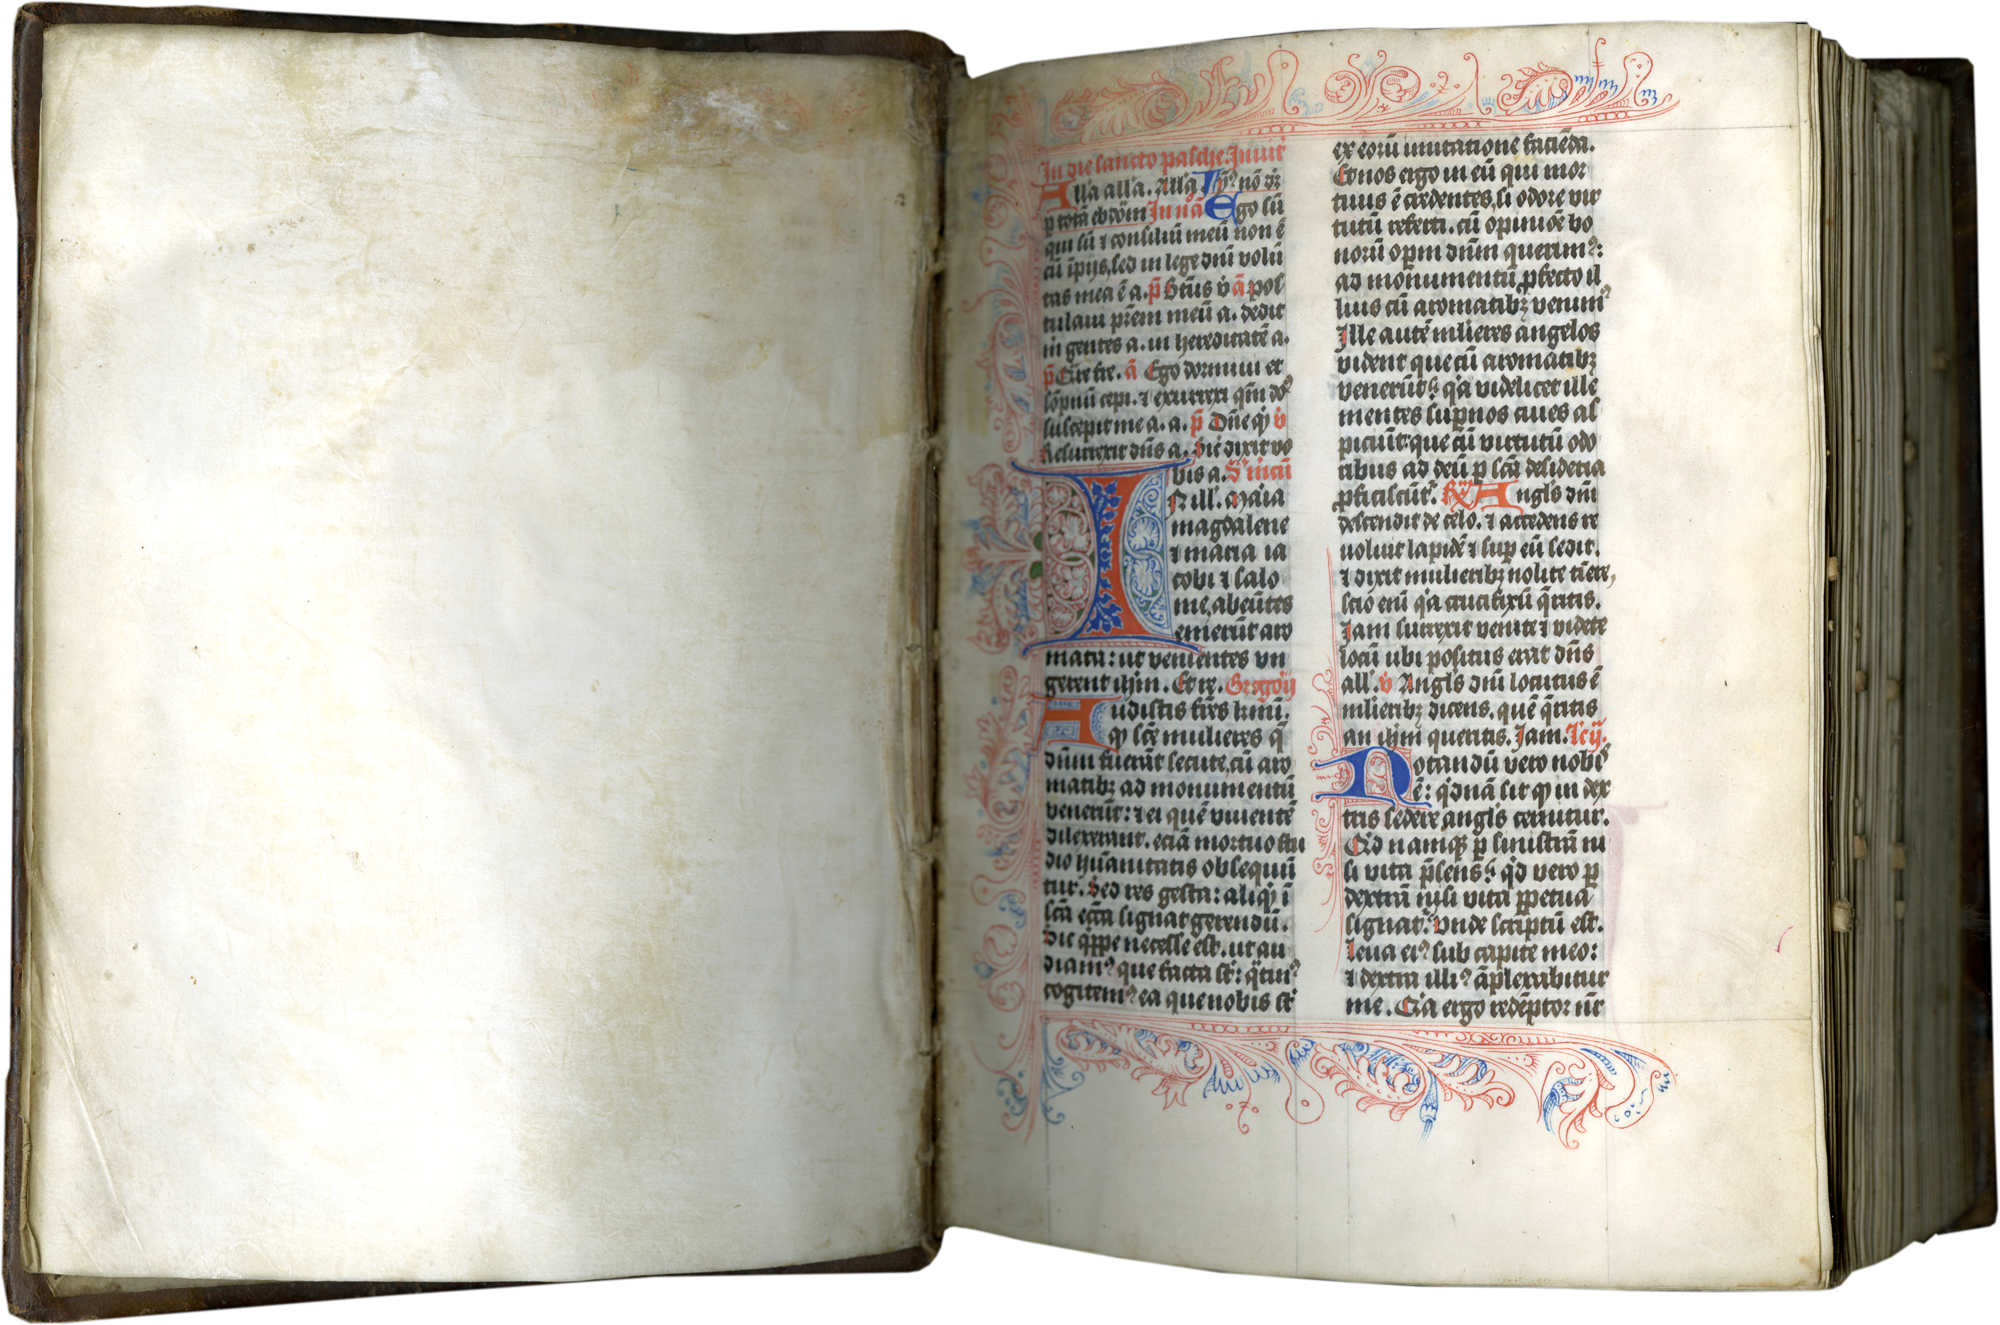 In die sancto pasche. Inuit
Alla all'a. All'a ỹ⁹ nō dr̄
p totā ebdōm In nā Ego sū
qui sū ⁊ consiliū meū non ē
cū īpijs, sed in lege dnī volū
tas mea ē a. p̄ Btūs v̄ ā pos
tulaui prēm meū a. dedit
m̄ gentes a. in hereditatē a.
p̄ Q̄re fre. ā Ego dormiui et
sōpnū cepi. ⁊ exurrexi qm̄ dn̄s
suscepit me a. a. p̄ Dn̄e q̄ v̄
Resurrexit dn̄s a. Sic dixit vo
bis a. S' marcū
N ill'. Maria
magdalene
⁊ maria ia
cobi ⁊ salo
me, abeūtes
emerūt aro
mata: ut venientes vn
gerent ihm̄. Et re. Gregorij
Audistis fr̄es kmī.
q̄ scē mulieres q̄
dnm̄ fuerāt secute, cū aro
matibꝫ ad monumentū
venerūt: ⁊ ei quē viuentē
dilexerant. eciā mortuo stu
dio hūanitatis obsequū
tur. Sed res gesta: aliq̄ ī
scā eccā signat gerendū.
Sic q̄ppe necesse est. ut au
diam⁹ que facta st̄: q̄tin⁹
cogitem⁹ ea que nobis st̄
ex eorū imitatione faciēda.
Et nos ergo in eū qui mor
tuus ē credentes, si odore vir
tutū referti. cū opiniōe bo
norū opm̄ dnm̄ querim⁹:
ad monumentū pfecto il
lius cū aromatibꝫ venim⁹
Ille autē mlieres angelos
vident que cū aromatibꝫ
venerūt: q̄a videlicet ille
mentes supnos ciues as
piciūt: que cū virtutū odo
ribus ad deū p scā desideria
pficiscūt̄. Rx Angls dnī
descendit de celo. ⁊ accedens re
uoluit lapidē ⁊ sup eū sedit.
⁊ dixit mulieribꝫ nolite tīere,
scio enī q̄a crucifixū q̄ritis.
Iam surrexit venite ⁊ videte
locū ubi positus erat dn̄s
all'. v̄ Angls dnī locutus ē
mlieribꝫ dicens. quē q̄ritis
an ihm̄ queritis. Iam. lc̄ ij.
Notandū vero nobis
ē: q̄dnā sit q̄ in dex
tris sedere angls cernitur.
Q̄d namqꝫ p sinistrā ni
si vita p̄sens: q̄d vero p
dextrā nisi vita ppetua
signat̄. Vnde scriptū est.
Leua ei⁹ sub capite meo:
⁊ dextra illi⁹ āplexabitur
me. Q̄a ergo redēptor nr̄